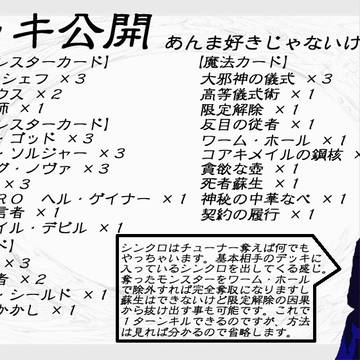 ッキ公開 あんま好きじゃないけ
ンスターカード】
シェフ ×3
ウス ×2
師 ×1
ンスターカード】
・ゴッド ×3
・ソルジャー ×3
グ・ノヴァ ×3
×3
ERO ヘル・ゲイナー ×1
言者 ×1
イル・デビル ×1
ド】
×3
者 ×2
・シールド ×1
かかし ×1
【魔法カード】
大邪神の儀式 ×3
高等儀式術 ×1
限定解除 ×1
反目の従者 ×1
ワーム・ホール ×1
コアキメイルの鋼核 ×
貪欲な壺 ×1
死者蘇生 ×1
神秘の中華なべ ×1
契約の履行 ×1
シンクロはチューナー奪えば何でも
やっちゃいます。基本相手のデッキに
入っているシンクロを出してくる感じ。
奪ったモンスターをワーム・ホール
で除外すれば完全奪取になりますし
蘇生はできないけど限定解除の因果
から抜け出す事も可能です。これで
1ターンキルできるのですが、方法
は見れば分かるので省略します。